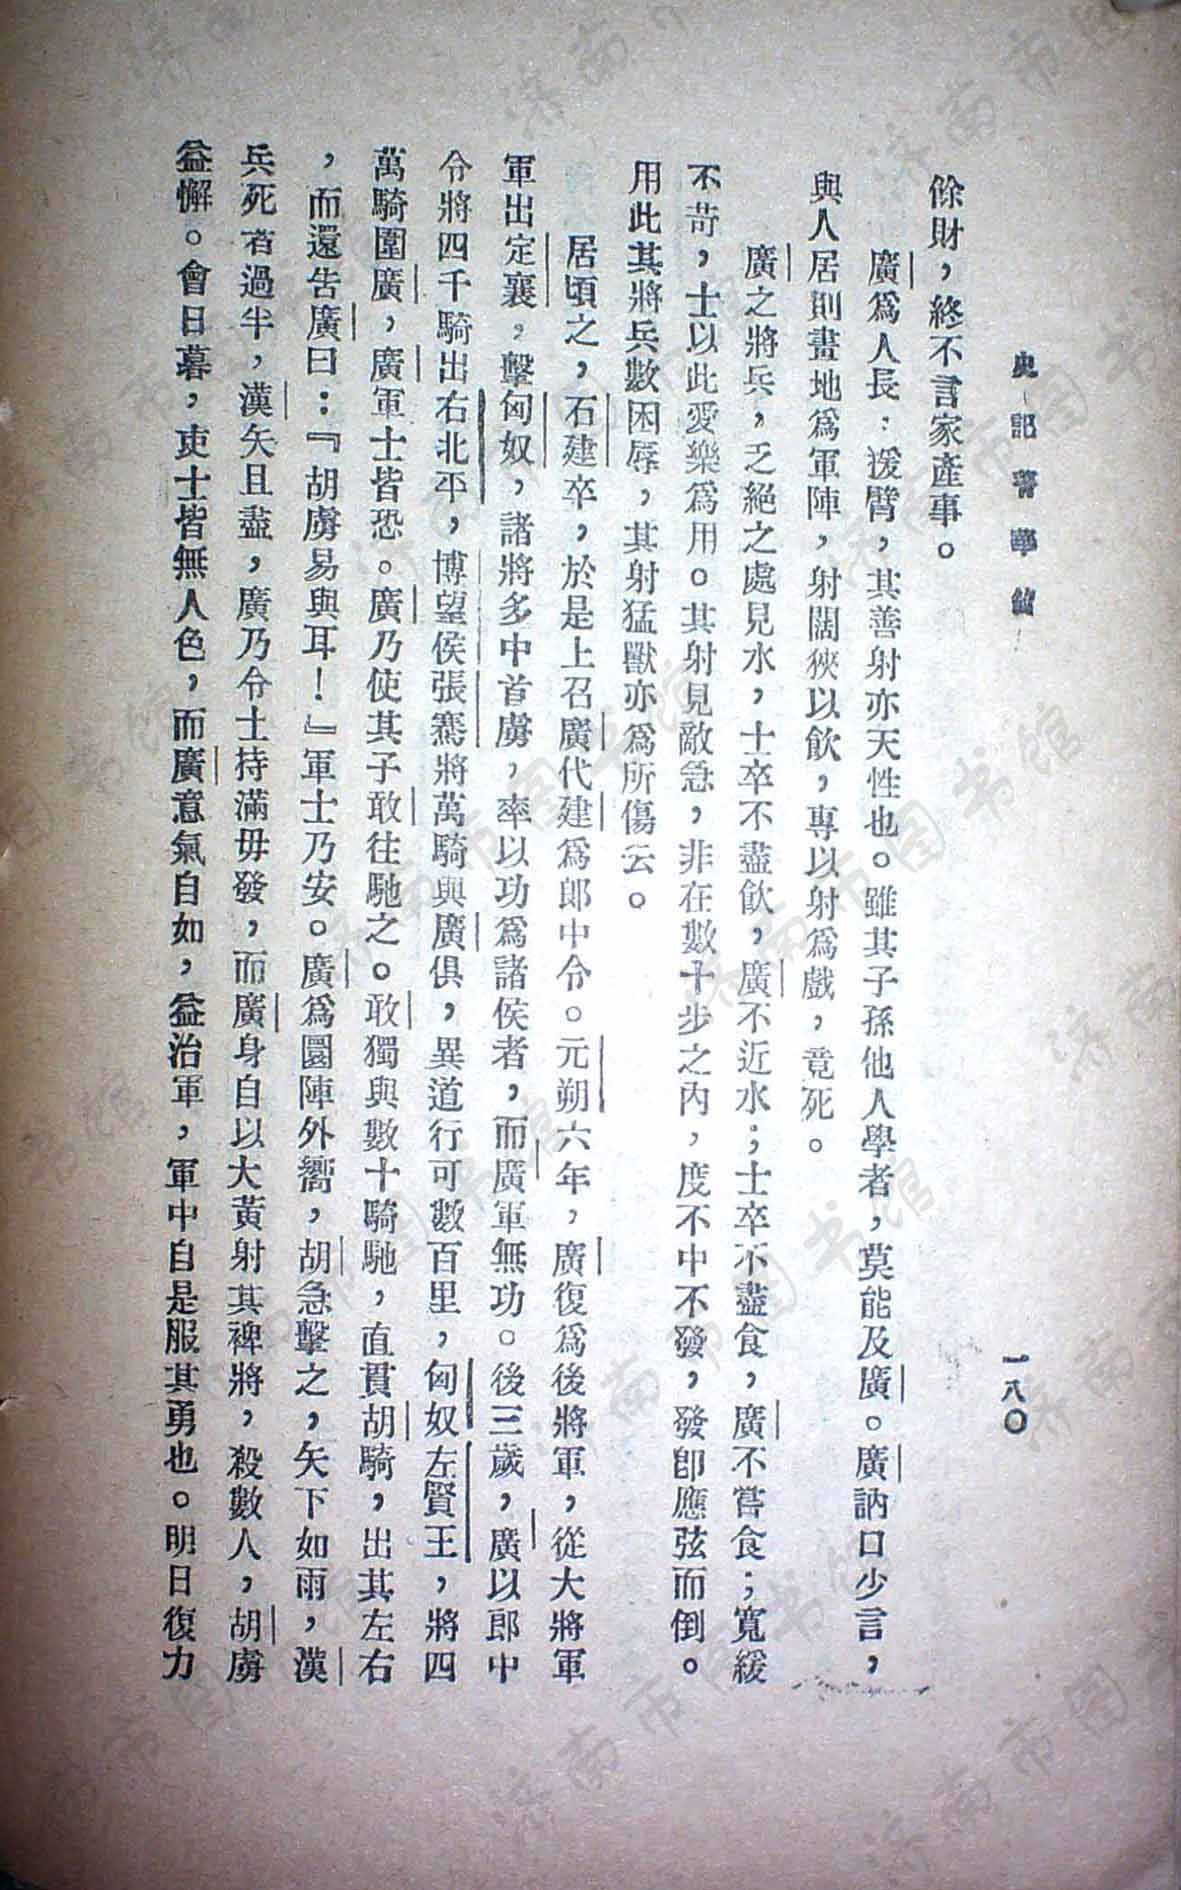 史記菁華錄
一八〇
餘財，終不言家產事。
廣爲人長，猨臂，其善射亦天性也。雖其子孫他人學者，莫能及廣。廣訥口少言，
與人居則畫地爲軍陣，射闊狹以飮，專以射爲戲，竟死。
廣之將兵，乏絕之處見水，士卒不盡飮，廣不近水；士卒不盡食，廣不嘗食；寬緩
不苛，士以此愛樂爲用。其射見敵急，非在數十步之內，度不中不發，發卽應弦而倒。
用此其將兵數困辱，其射猛獸亦爲所傷云。
居頃之，石建卒，於是上召廣代建爲郎中令。元朔六年，廣復爲後將軍，從大將軍
軍出定襄，擊匈奴，諸將多中首虜，率以功爲諸侯者，而廣軍無功。後三歲，廣以郎中
令將四千騎出右北平，博望侯張騫將萬騎與廣俱，異道行可數百里，匈奴左賢王，將四
萬騎圍廣，廣軍士皆恐。廣乃使其子敢往馳之。敢獨與數十騎馳，直貫胡騎，出其左右
，而還告廣曰：『胡虜易與耳！』軍士乃安。廣爲圜陣外嚮，胡急擊之，矢下如雨，漢
兵死者過半，漢矢且盡，廣乃令士持滿毋發，而廣身自以大黃射其裨將，殺數人，胡虜
益懈。會日暮，吏士皆無人色，而廣意氣自如，益治軍，軍中自是服其勇也。明日復力
济南市图书馆